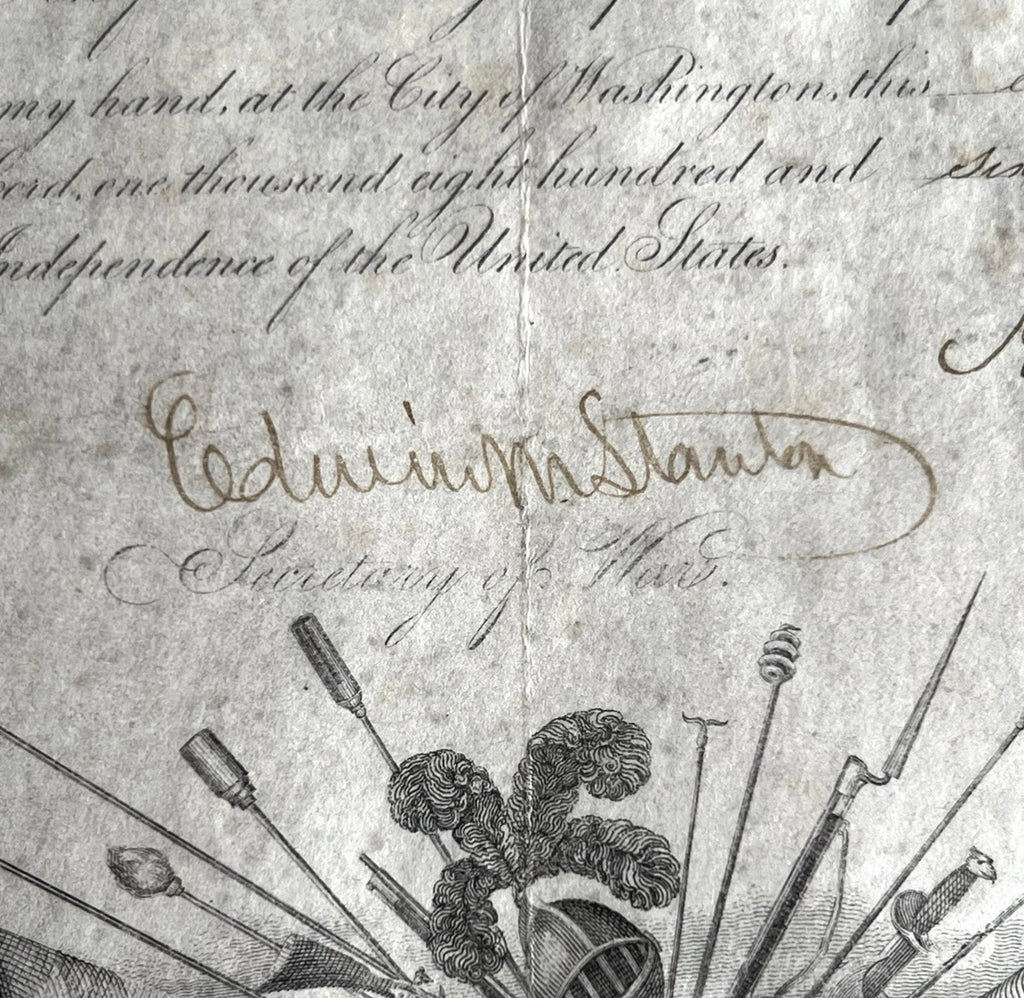 my hand, at the City of Washington, this
Lord, one thousand eight hundred and
Independence of the United States.
Edwin M Stanton
Secretary of War.